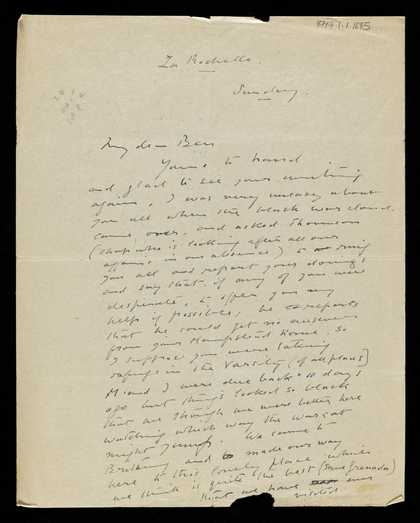 La Rochelle.
Sunday.
My dear Ben
Yours to hand
and glad to see your writing
again. I was very uneasy about
you all when the black war cloud
came over, and asked Thomson
(chap who is looking after all our
affairs in our absence) to ring
you all and report your doings
and say that if any of you were
desperate, to offer you any
help if possible, he reports
that he could get no answers
from your Hampstead home. So
I suppose you were taking
refuge in the Varsity (of all places)
M and I were due back 10 days
ago but things looked so black
that we thought we were better here
watching which way the War cat
might jump. We came to
Brittany and made our way
here to this lovely place which
we think is quite the best (save Grenada)
that we have ever
visited